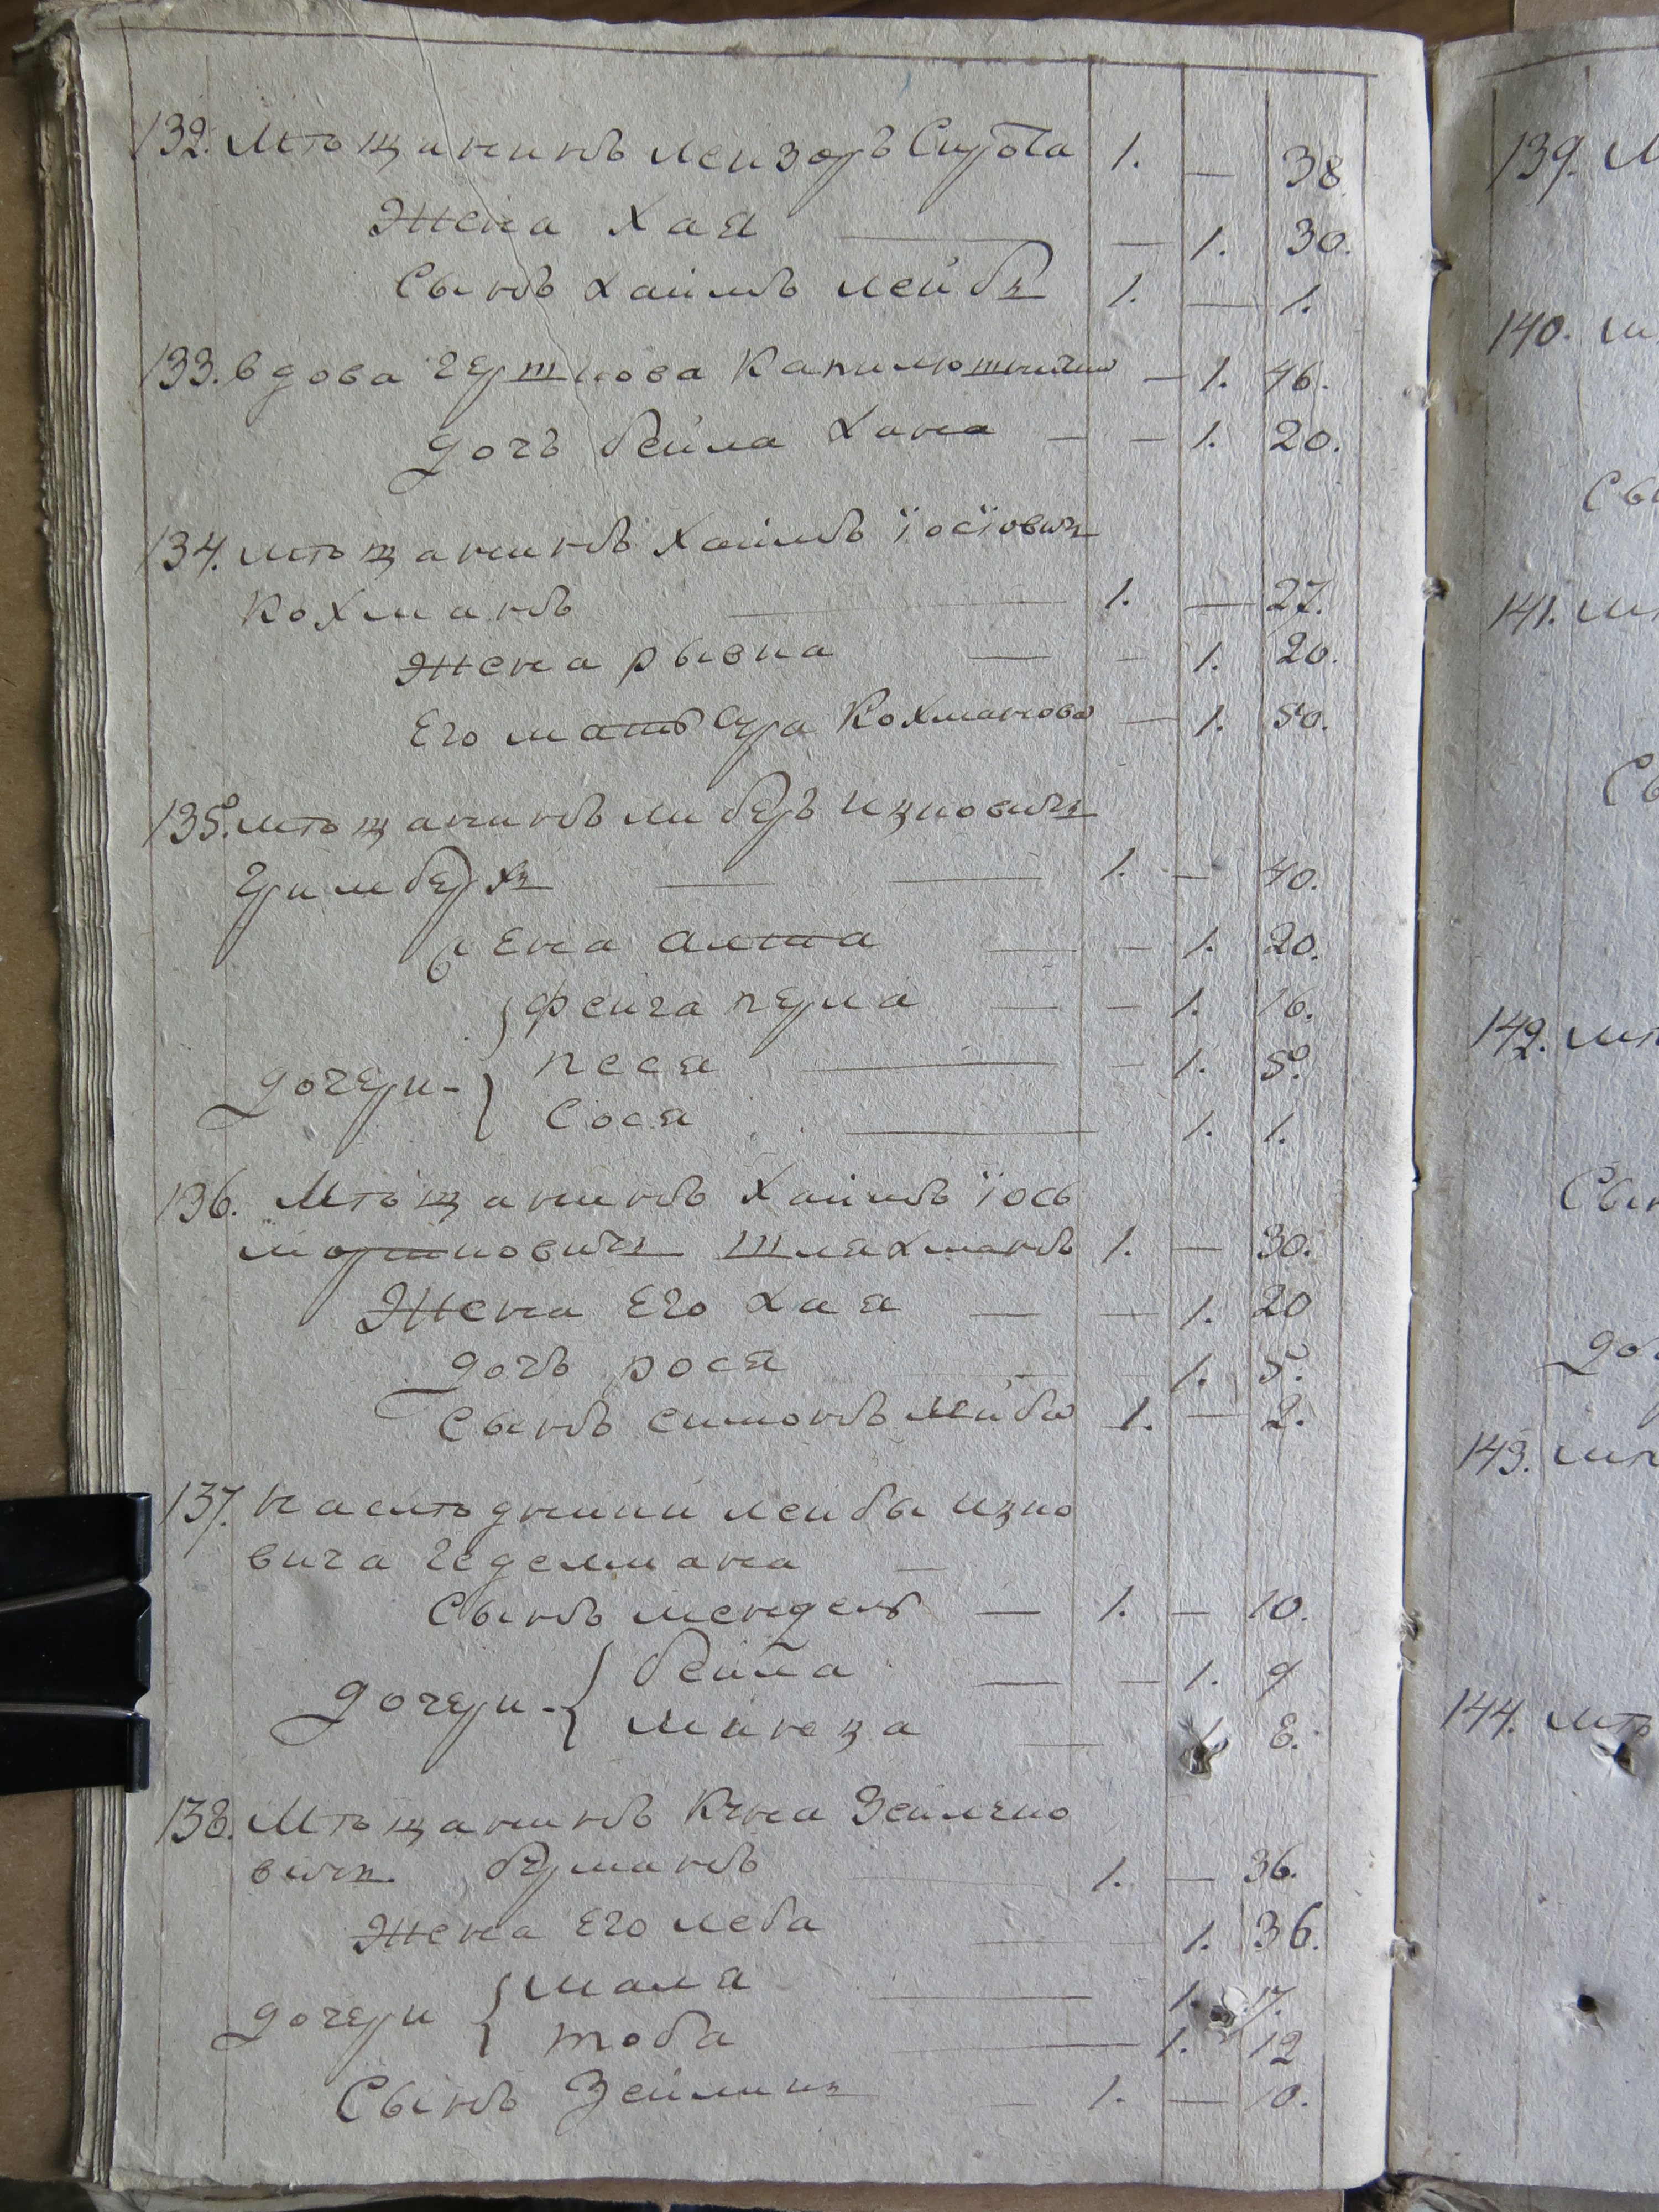 132. Мѣщанинъ Лейзоръ Сирота 1. — 38.
Жена Хая — 1. 30.
Сынъ Хаимъ Лейбъ 1. — 1.
133. Вдова Гершкова — 1. 46.
дочь Бейла Хана — — 1. 20.
134. Мѣщанинъ Хаимъ Їосїовичъ
Кохманъ 1. — 27.
Жена Рывка — — 1. 20.
Его мать Сура Кохманова — 1. 50.
135. Мѣщанинъ Либеръ Ицковичъ
Гримберхъ — — 1. — 40.
Жена Алта — — 1. 20.
Фейга Перла — — 1. 16.
дочери - Песя — — 1. 5.
Сося — 1. 1.
136. Мѣщанинъ Хаимъ Їось
Мортковичъ Шляхманъ 1. — 30.
Жена Его Хая — — 1. 20
дочь Рося 1. 5.
Сынъ Симонъ Лейба 1. — 2.
137. Наслѣдники Лейбы Ицко
вича Гедельмана —
Сынъ Мендель — 1. — 10.
дочери - Бейла — — 1. 9
Минца — 1. 8.
138. Мѣщанинъ Куна Зейлико
вичъ Берманъ 1. — 36.
Жена Его Леба — 1. 36.
дочери Мала — 1. 17.
Тоба — 1. 12
Сынъ Зейликъ — 1. — 10.
139. М
140. М
Сы
141. М
Сы
142. Мѣ
Сын
до
143. Мѣ
144. Мѣ